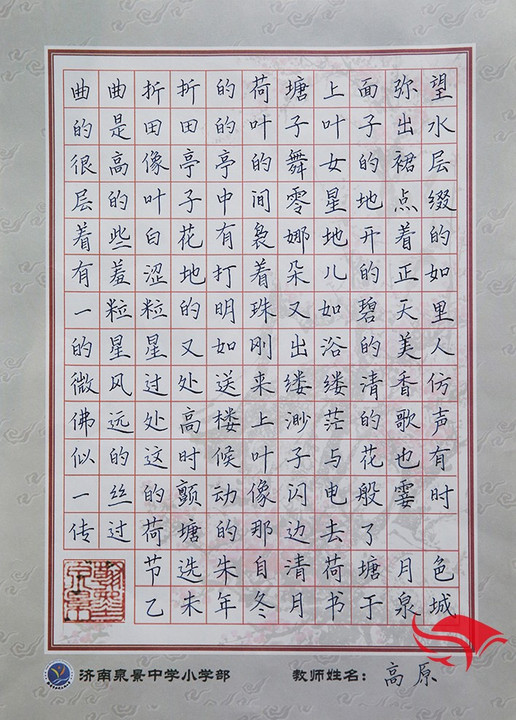 曲曲折折的荷塘上面弥望
的是田田的叶子叶子出水
很高像亭亭的舞女的裙层
层的叶子中间零星地点缀
着些白花有袅娜地开着的
有羞涩地打着朵儿的正如
一粒粒的明珠又如碧天里
的星星又如刚出浴的美人
微风过处送来缕缕清香仿
佛远处高楼上渺茫的歌声
似的这时候叶子与花也有
一丝的颤动像闪电般霎时
传过荷塘的那边去了
节选朱自清荷塘月色
乙未年冬月书于泉城
济南泉景中学小学部 教师姓名：高原